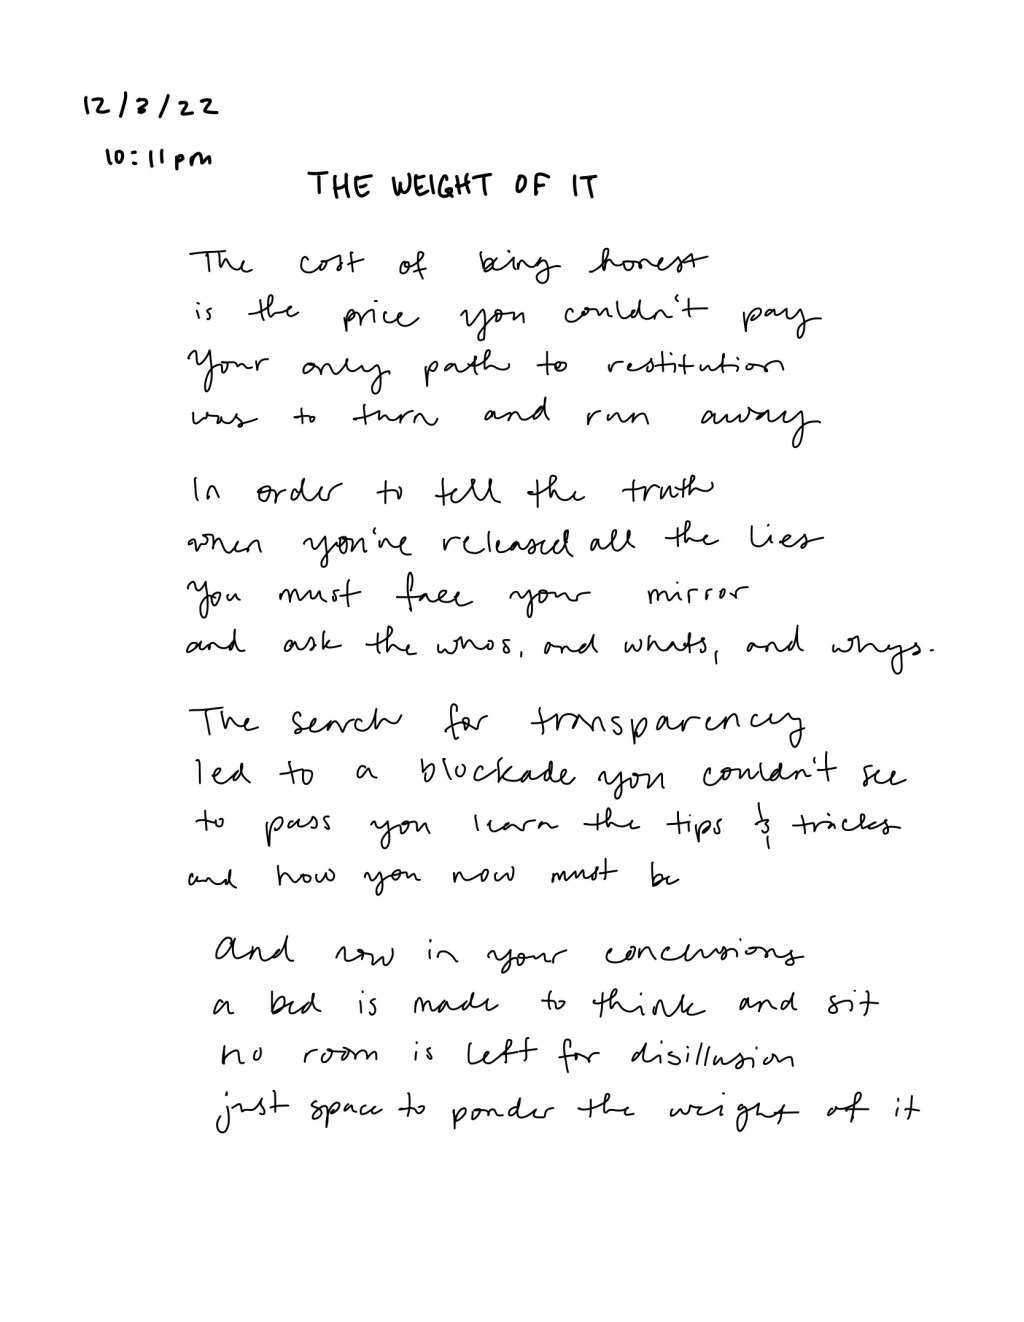 12/3/22
10:11pm
THE WEIGHT OF IT
The cost of being honest
is the price you couldn't pay
Your only path to restitution
was to turn and run away
In order to tell the truth
when you've released all the lies
You must face your mirror
and ask the whos, and whats, and whys.
The search for transparency
led to a blockade you couldn't see
to pass you learn the tips & tricks
and how you now must be
And now in your conclusions
a bed is made to think and sit
no room is left for disillusion
just space to ponder the weight of it